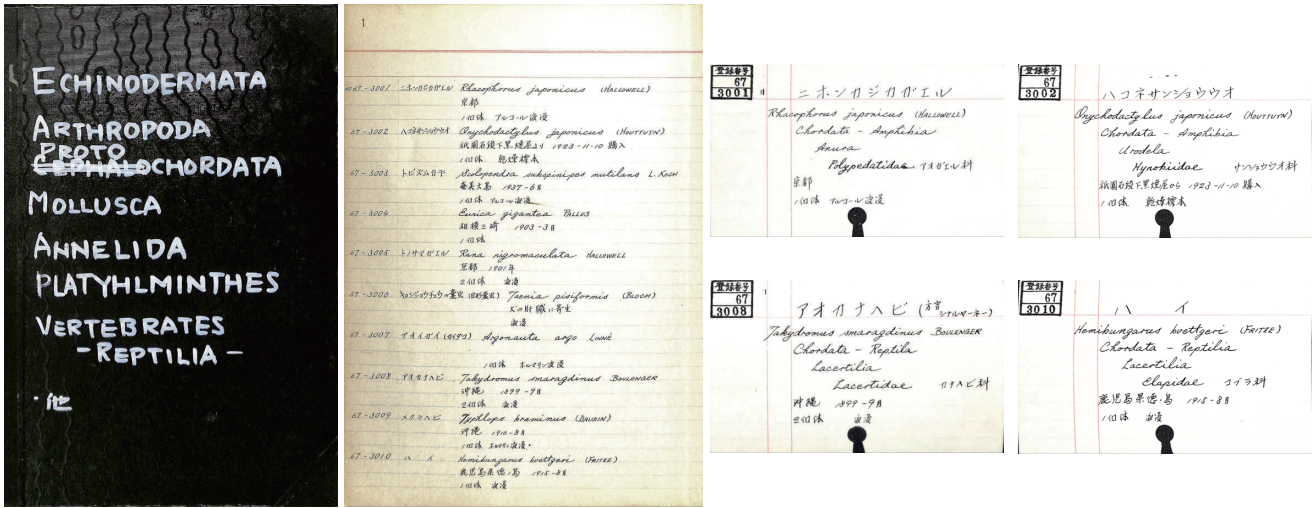 ECHINODERMATA
ARTHROPODA
PROTO
CEPHALOCHORDATA
MOLLUSCA
ANNELIDA
PLATYHLMINTHES
VERTEBRATES
-REPTILIA-
・他
1
67-3001 ニホンカジカガエル Rhacophorus japonicus (HALLOWELL)
京都
1個体 アルコール液浸
67-3002 ハコネサンショウウオ Onychodactylus japonicus (HOUTTUYN)
祇園石段下黒焼屋より 1923-11-10 購入
1個体 乾燥標本
67-3003 トビズムカデ Scolopendra subspinipes mutilans L. KOCH
奄美大島 1937-6月
1個体 アルコール液浸
67-3004 Eunica gigantea PALLAS
相模三崎 1903-3月
1個体
67-3005 トノサマガエル Rana nigromaculata HALLOWELL
京都 1901年
2個体 液浸
67-3006 Taenia pisiformis (BLOCH)
犬の肝臓に寄生
液浸
67-3007 アオイガイ (カイダコ) Argonauta argo LINNÉ
1個体 ホルマリン液浸
67-3008 アオカナヘビ Takydromus smaragdinus BOULENGER
沖縄 1899-9月
2個体 液浸
67-3009 メクラヘビ Typhlops braminus (DAUDIN)
沖縄 1910-8月
1個体 ホルマリン液浸
67-3010 ハイ Hemibungarus boettgeri (FRITZE)
鹿児島県徳島 1915-8月
1個体 液浸
登録番号
67
3001
ニホンカジカガエル
Rhacophorus japonicus (HALLOWELL)
Chordata - Amphibia
Anura
Polypedatidae アオガエル科
京都
1個体 アルコール液浸
登録番号
67
3002
ハコネサンショウウオ
Onychodactylus japonicus (HOUTTUYN)
Chordata - Amphibia
Urodela
Hynobiidae サンショウウオ科
祇園石段下黒焼屋から 1923-11-10 購入
1個体 乾燥標本
登録番号
67
3008
アオカナヘビ (方言
Takydromus smaragdinus BOULENGER
Chordata - Reptila
Lacertilia
Lacertidae カナヘビ科
沖縄 1899-9月
2個体 液浸
登録番号
67
3010
ハイ
Hemibungarus boettgeri (FRITZE)
Chordata - Reptilia
Lacertilia
Elapidae コブラ科
鹿児島県徳島 1915-8月
1個体 液浸